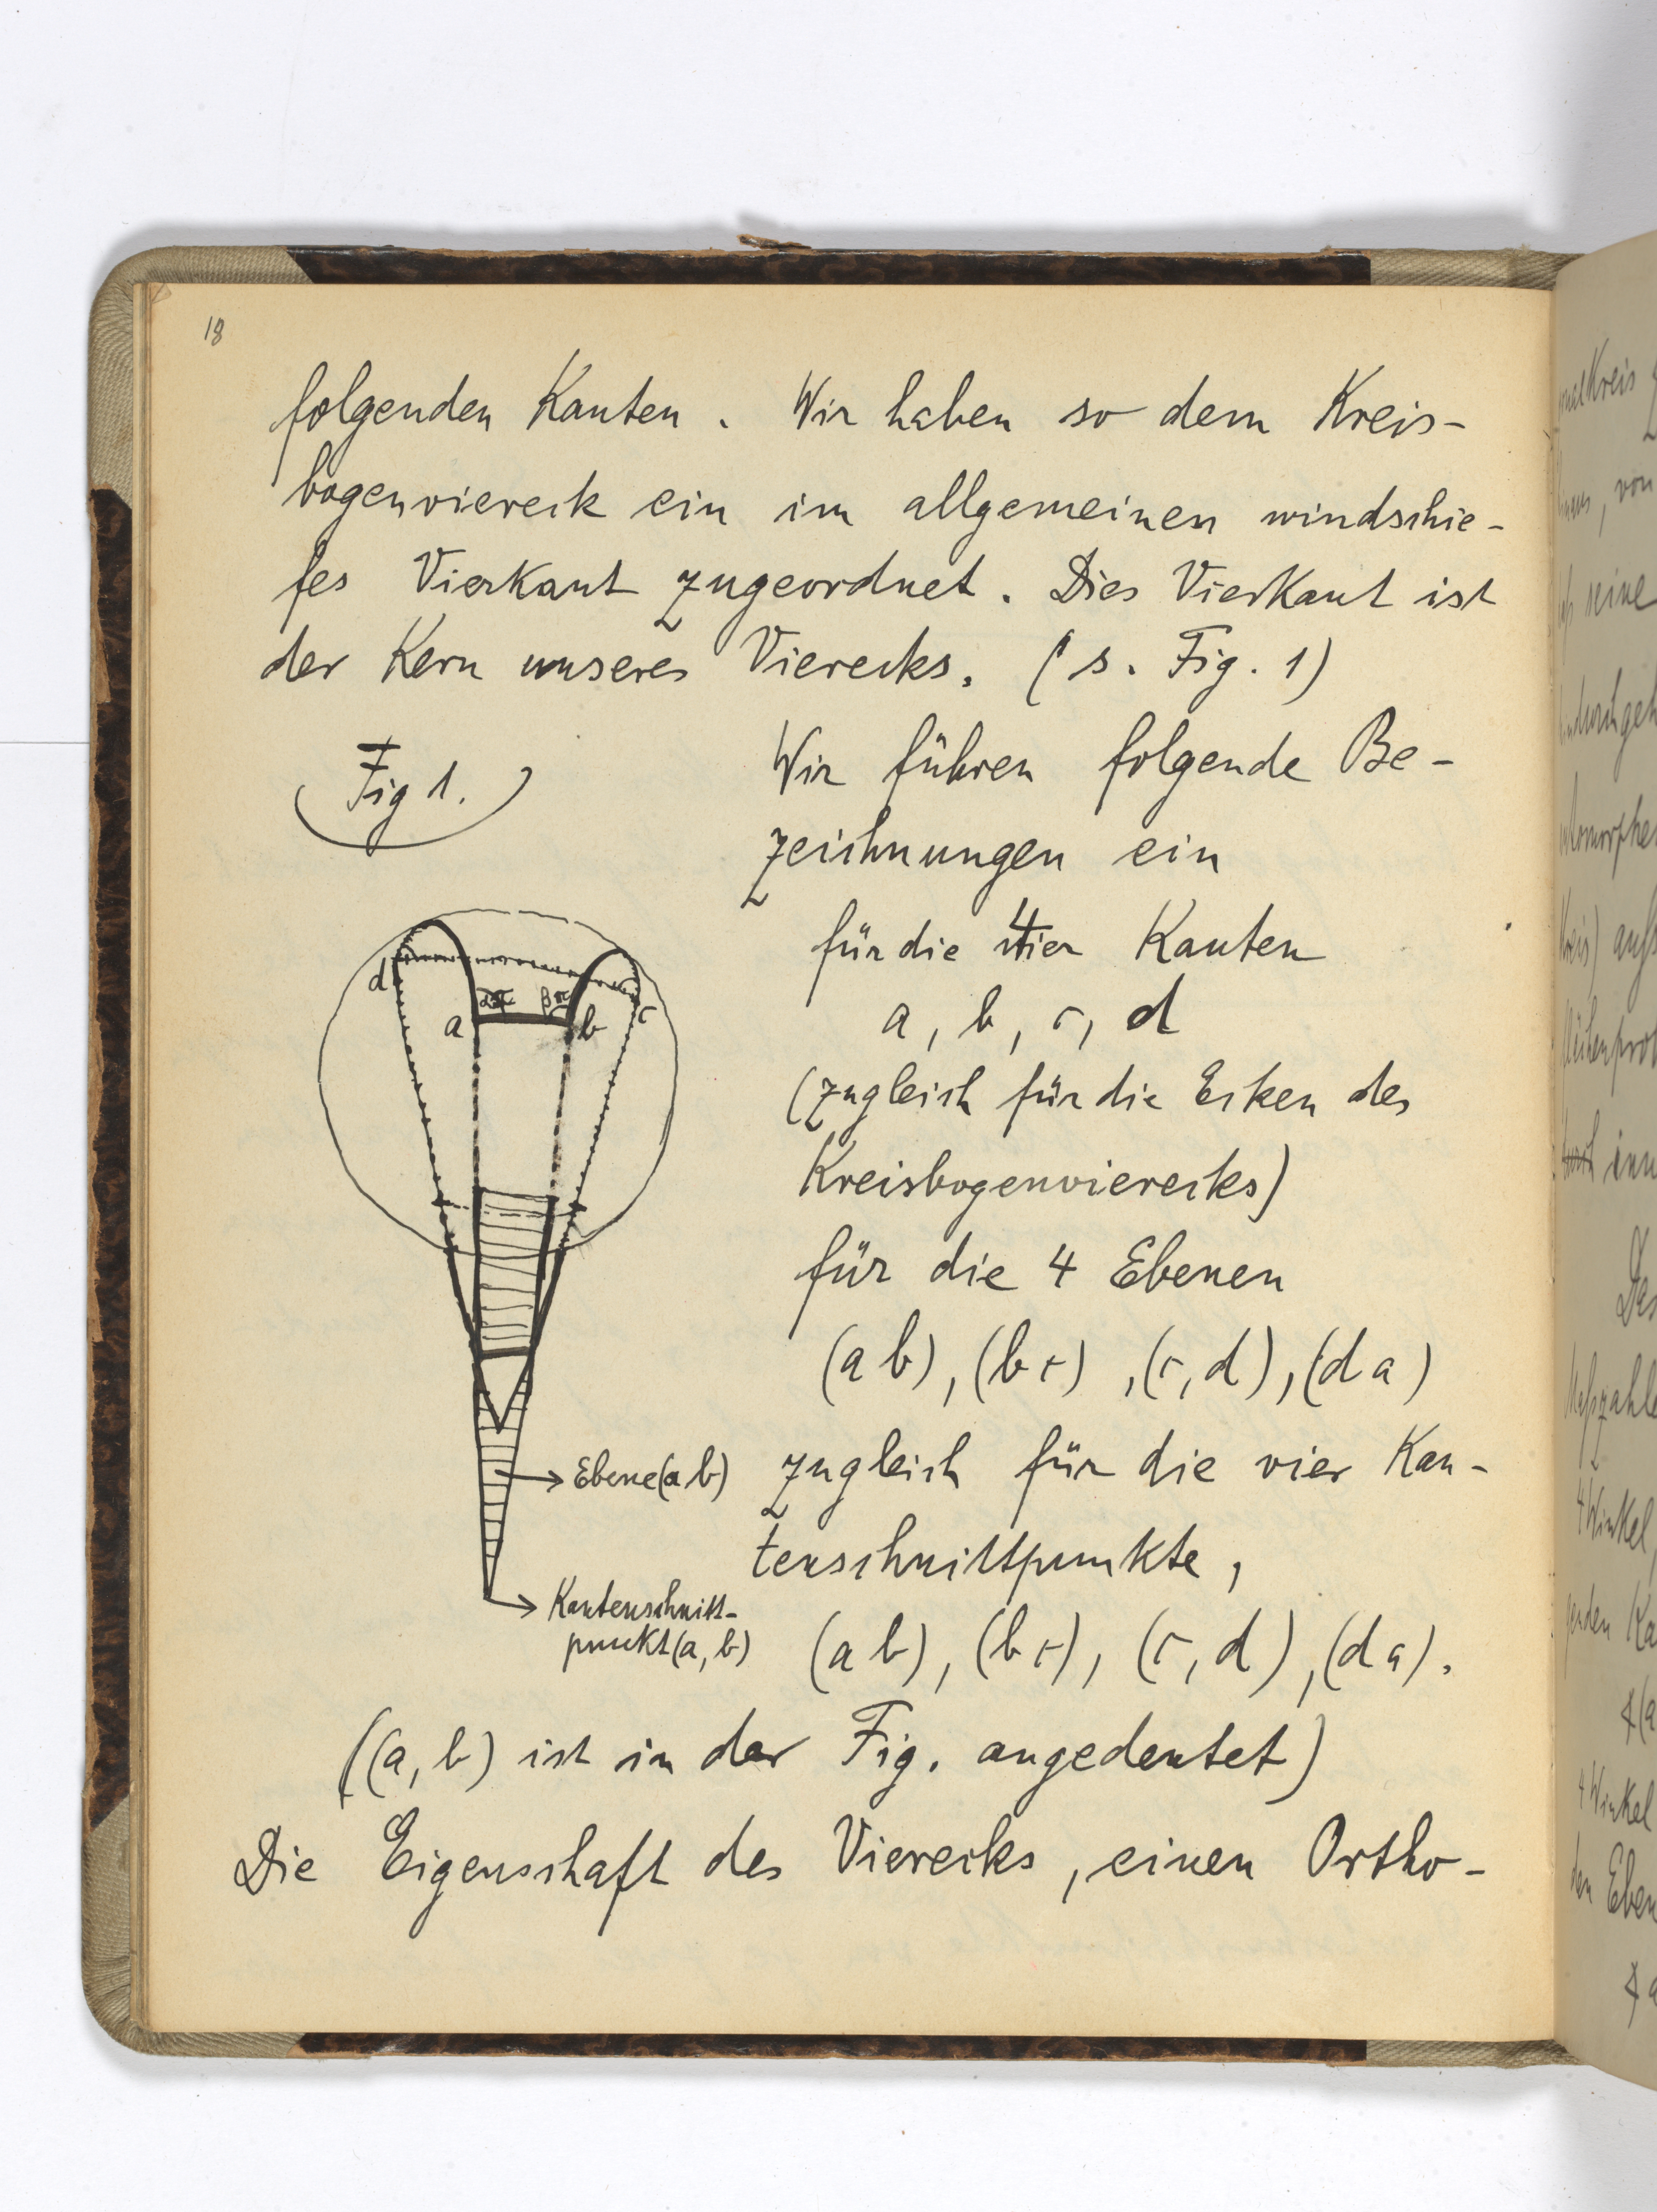 18
folgenden Kanten. Wir haben so dem Kreis-
bogenviereck ein im allgemeinen windschie-
fes Vierkant zugeordnet. Dies Vierkant ist
der Kern unseres Vierecks. (s. Fig. 1)
Fig 1.
Wir führen folgende Be-
zeichnungen ein
für die 4 Kanten
a, b, c, d
(zugleich für die Ecken des
Kreisbogenvierecks)
für die 4 Ebenen
(a b), (b c), (c, d), (d a)
zugleich für die vier Kan-
tenschnittpunkte,
(a b), (b c), (c, d), (d a).
d
a
b
c
Ebene (a b)
Kantenschnitt-
punkt (a, b)
((a, b) ist in der Fig. angedeutet)
Die Eigenschaft des Vierecks, einen Ortho-